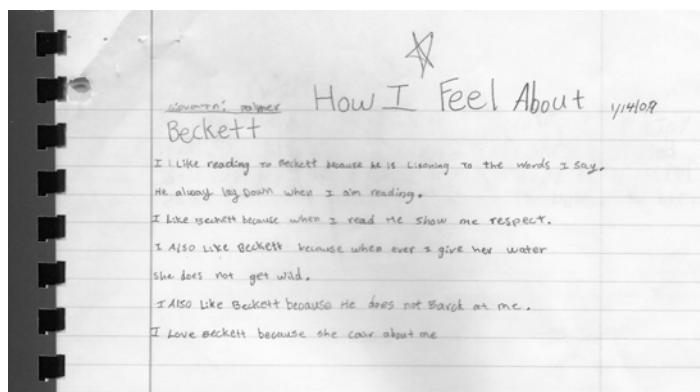 Giovanni Palmer How I Feel About 1/14/09
Beckett
I Like reading to Beckett because he is Lisoning to the words I say.
He alwoay lay Down when I am reading.
I Like Beckett because when I read He show me respect.
I Also Like Beckett because when ever I give her water
she does not get wild.
I Also Like Beckett because He does not Barck at me.
I Love Beckett because she caar about me